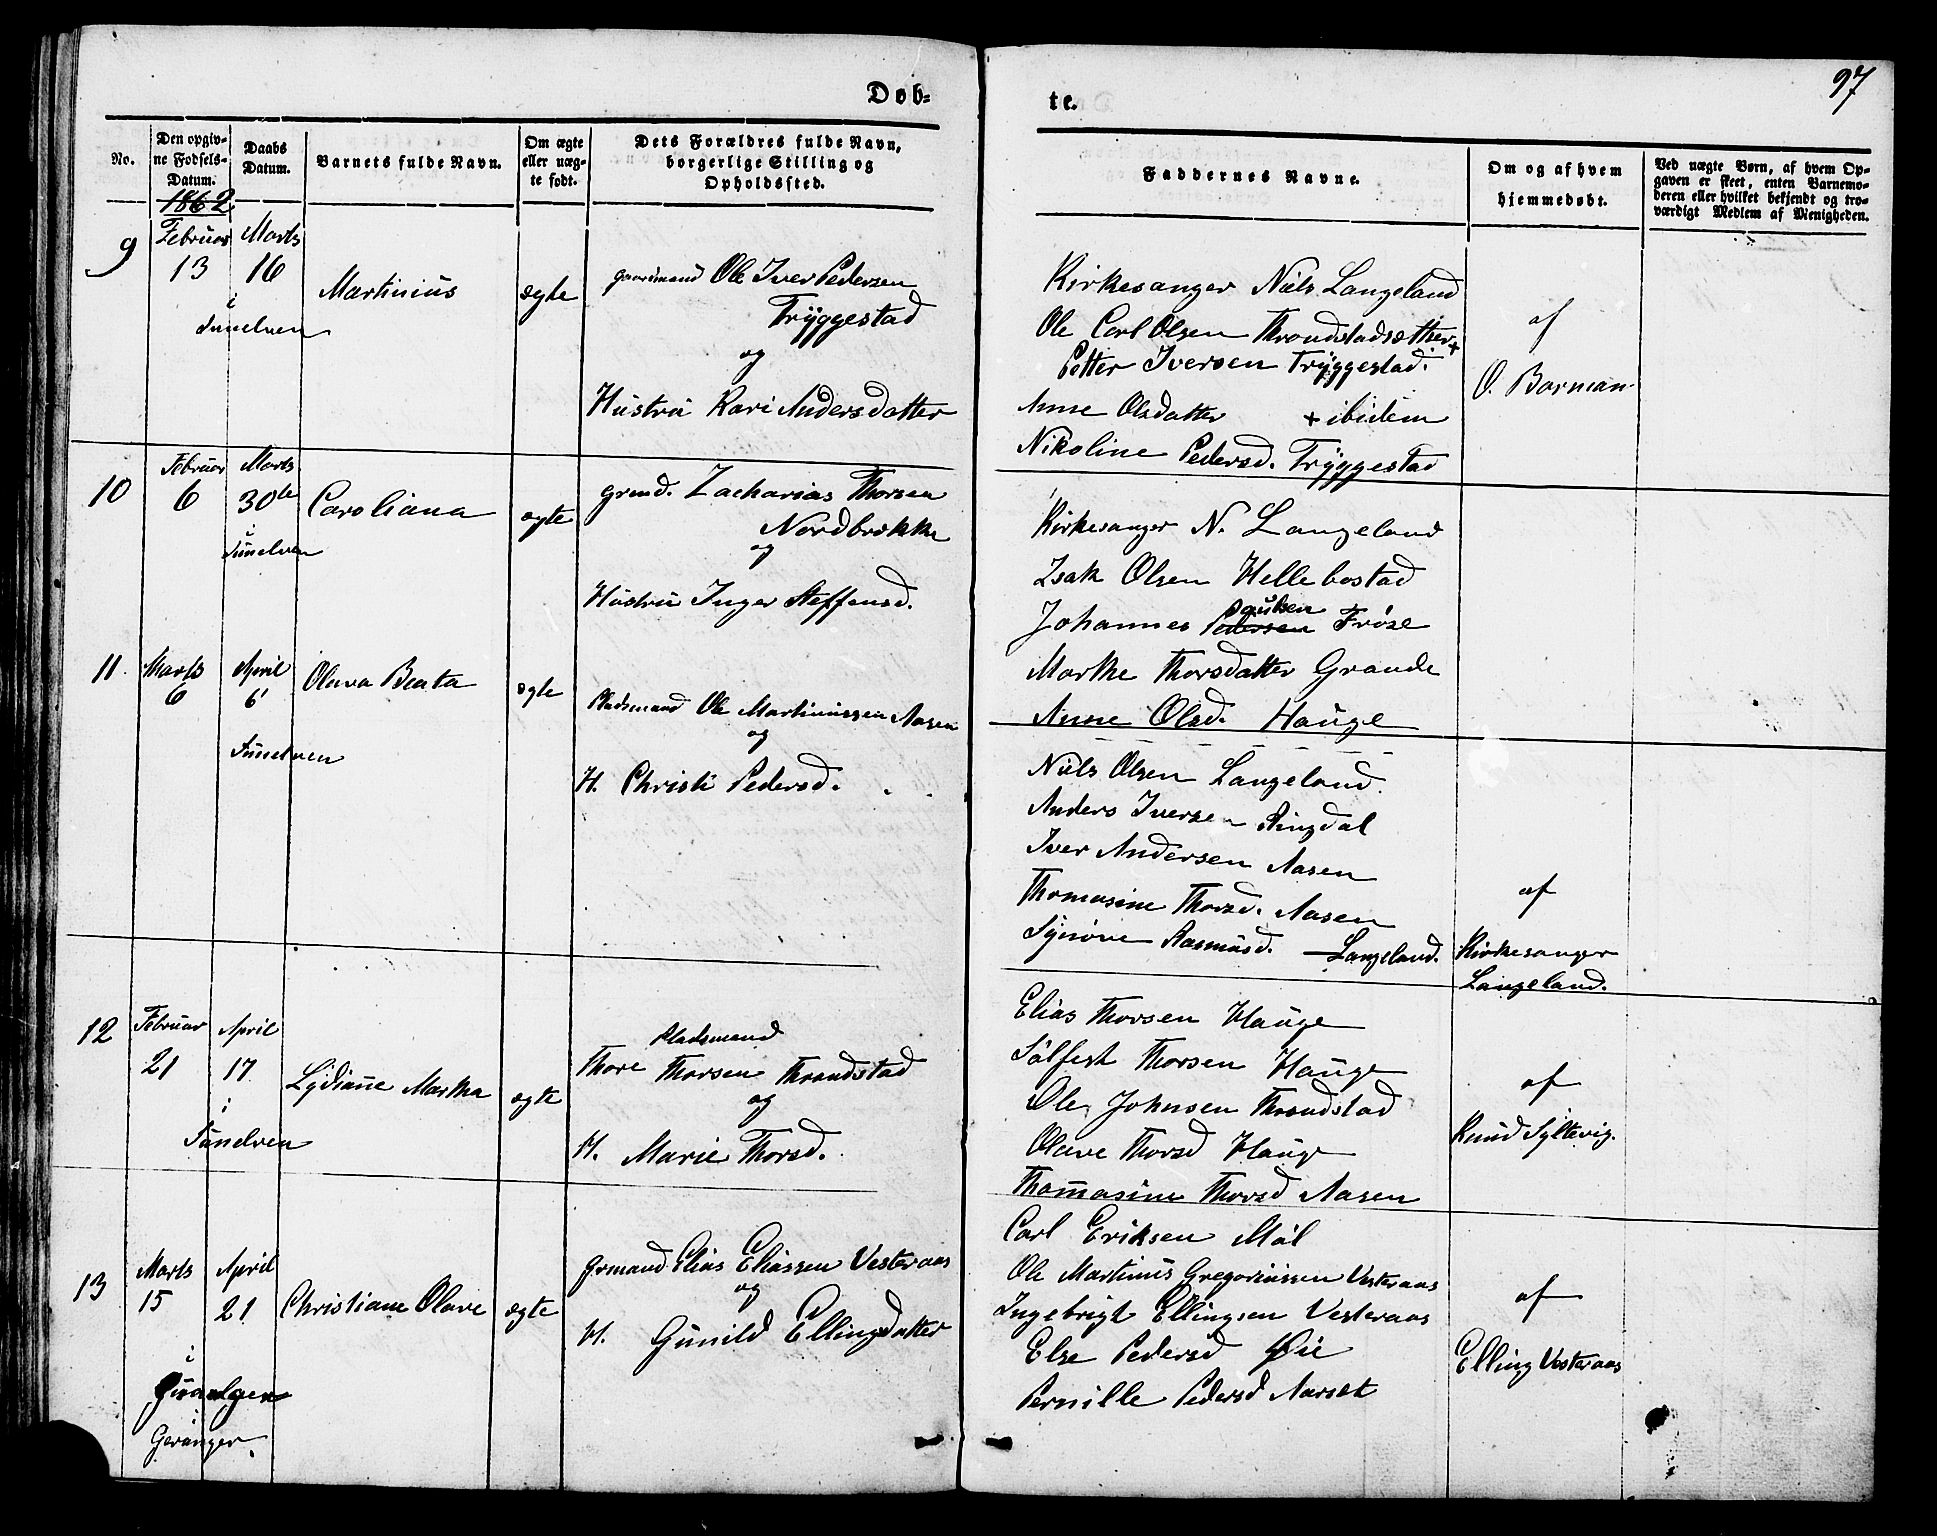 Døb-
te.
97
No.
Den opgiv-
ne Fødsels-
Datum.
Daabs
Datum.
Barnets fulde Navn.
Om ægte
eller uæg-
te født.
Dets Forældres fulde Navn,
borgerlige Stilling og
Opholdssted.
Faddernes Navne.
Om og af hvem
hjemmedøbt.
Ved uægte Børn, af hvem Op-
gaven er skeet, enten Barnemo-
deren eller hvilket bekjendt og tro-
værdigt Medlem af Menigheden.
1862
9
Februar
13
Marts
16
i
Sunelven
Martinius
ægte
gaardmand Ole Iver Pedersen
Tryggestad
og
Hustru Kari Andersdatter
Kirkesanger Niels Langeland
Ole Carl Olsen Throndstadsætter +
Petter Iversen Tryggestad.
Anne Olsdatter + ibidem
Nikoline Pedersd. Tryggestad
af
O. Barman
10
Februar
6
Marts
30te
i
Sunelven
Caroliana
ægte
grmd. Zacharias Thorsen
Nordbrække
og
Hustru Inger Steffensd.
Kirkesanger N. Langeland
Isak Olsen Hellebostad
Johannes Pedersen Paulsen Frøse
Marthe Thorsdatter Grande
Anne Olsd. Hauge
11
Marts
6
April
6
Sunelven
Olava Beata
ægte
Pladsmand Ole Martinussen Aasen
og
H. Christi Pedersd.
Niels Olsen Langeland.
Anders Iversen Ringdal
Iver Andersen Aasen
Thomasine Thorsd. Aasen
Synøve Rasmusd. Langeland.
af
Kirkesanger
Langeland.
12
Februar
21
April
17
i
Sunelven
Lydianne Martha
ægte
Pladsmand
Thore Thorsen Throndstad
og
H. Marie Thorsd.
Elias Thorsen Hauge
Sølfest Thorsen Hauge
Ole Johnsen Throndstad
Olave Thorsd Hauge
Thommasine Thorsd Aasen
af
Knud Syltevig.
13
Marts
15
April
21
i
i
Geranger
Christiane Olave
ægte
grmand Elias Eliassen Vesteraas
og
H. Gunild Ellingsdatter
Carl Eriksen Møl
Ole Martinus Gregoriussen Vesteraas
Ingebrigt Ellingsen Vesteraas
Else Pedersd Øie
Pernille Pedersd Aarset
af
Elling Vesteraas